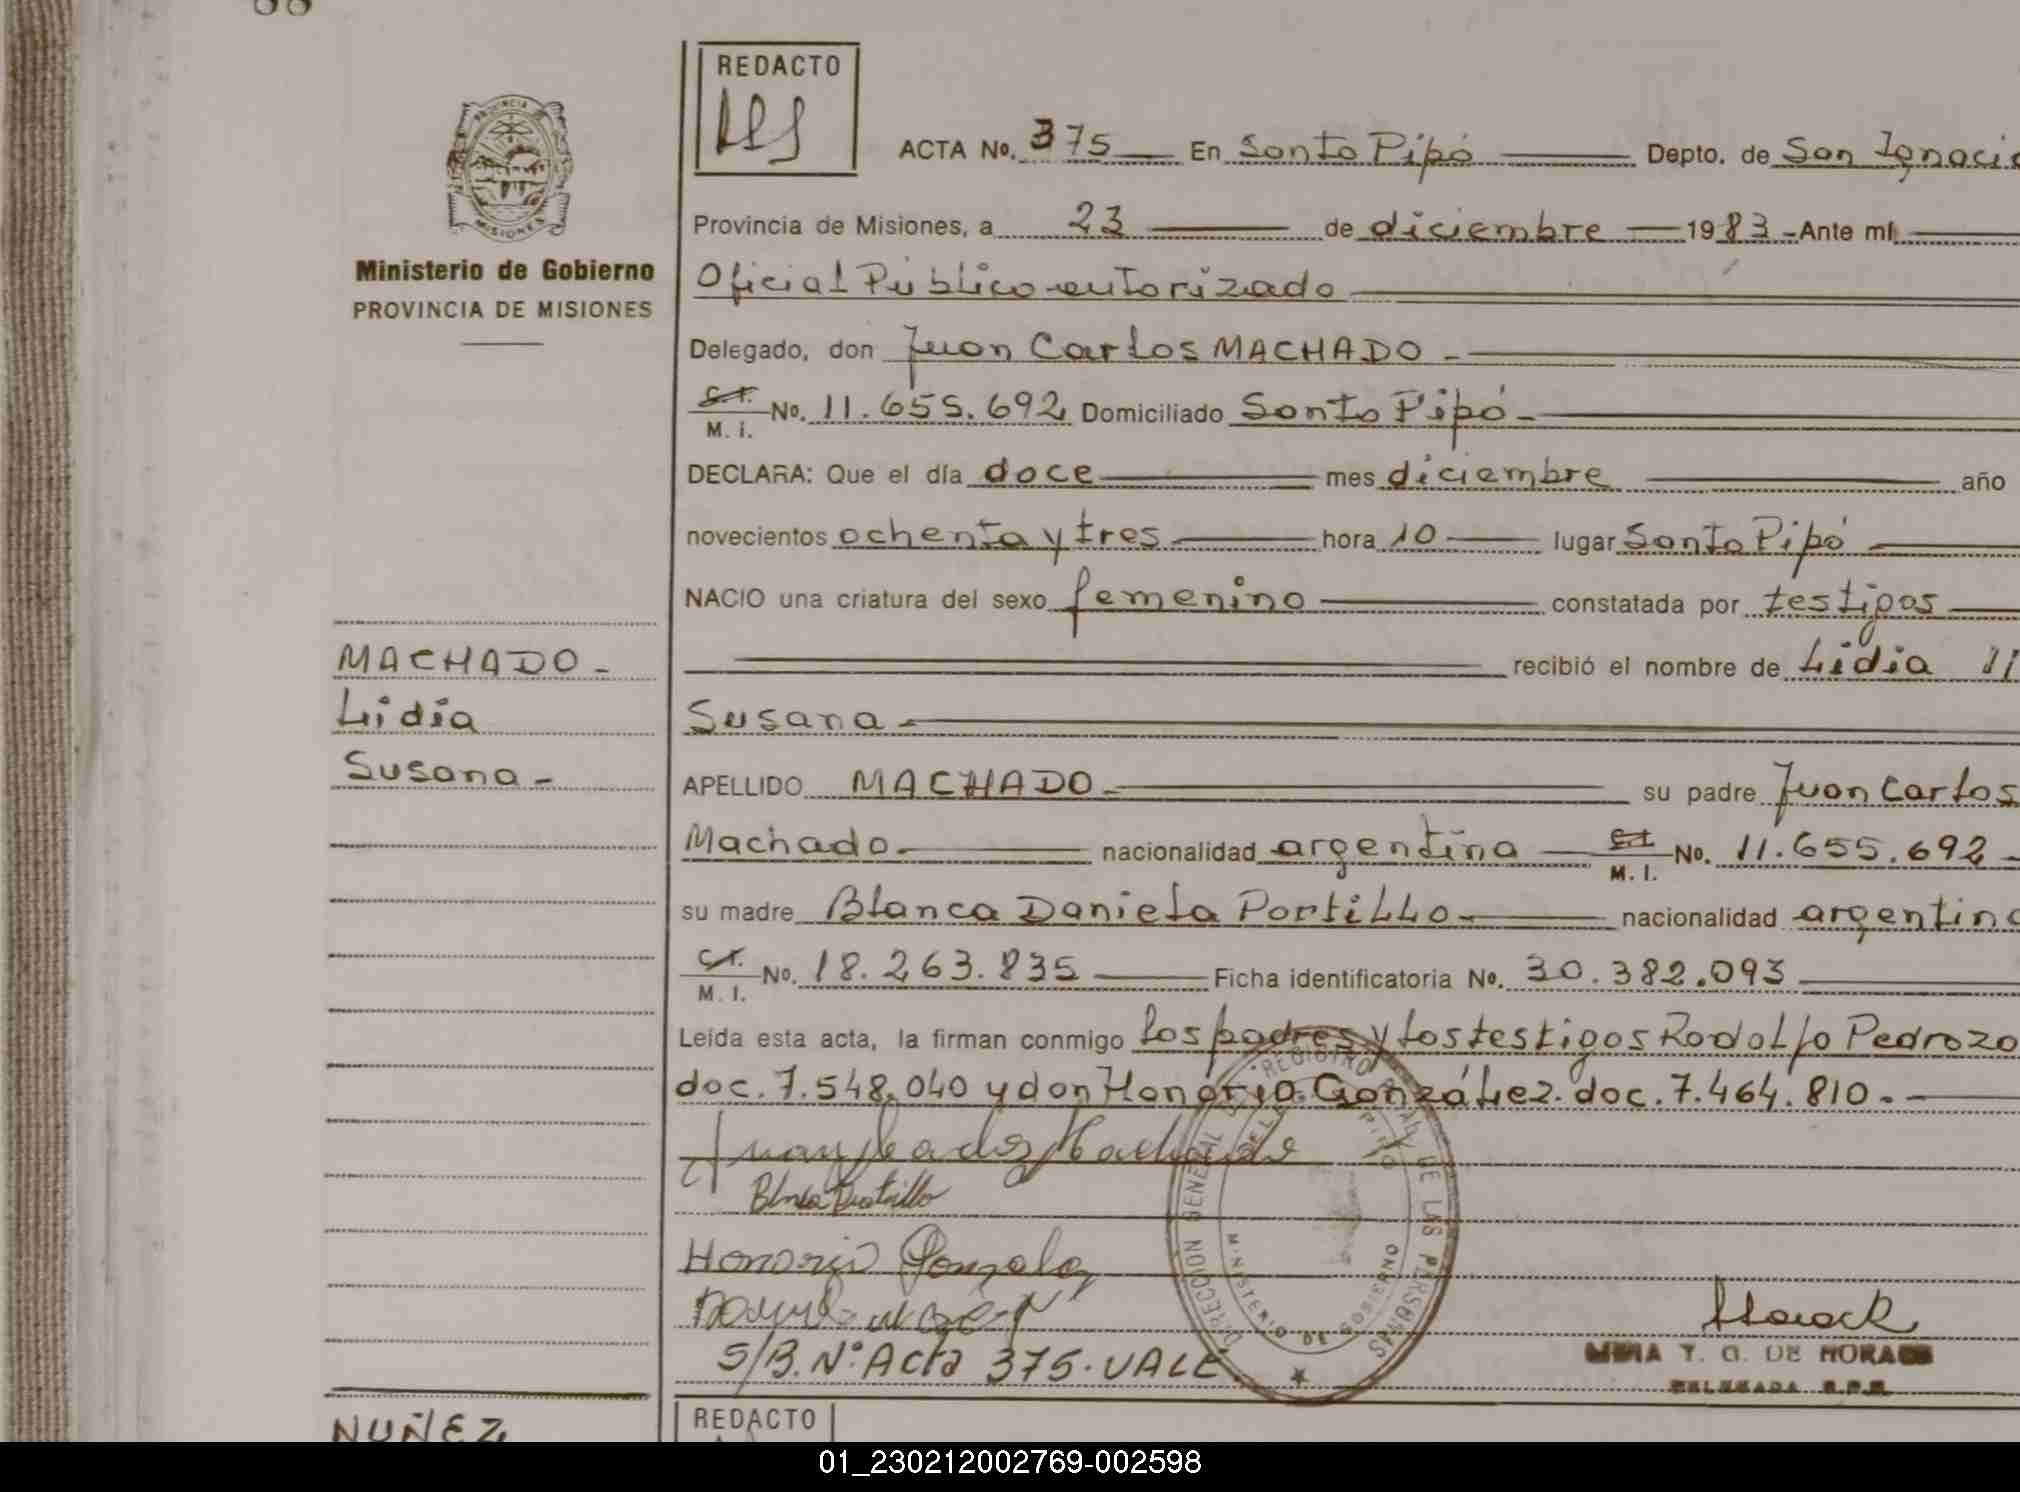 REDACTO
ACTA No. 375 En Santo Pipó Depto. de San Ignacio
PROVINCIA
MISIONES
Provincia de Misiones, a 23 de diciembre 1983 - Ante mí
Ministerio de Gobierno
PROVINCIA DE MISIONES
Oficial Público autorizado
Delegado, don Juan Carlos MACHADO -
C.I. M. I. No. 11.655.692 Domiciliado Santo Pipó -
DECLARA: Que el día doce mes diciembre año
novecientos ochenta y tres hora 10 lugar Santo Pipó
NACIO una criatura del sexo femenino constatada por testigos
recibió el nombre de Lidia
MACHADO -
Lidia
Susana -
Susana -
APELLIDO MACHADO - su padre Juan Carlos
Machado - nacionalidad argentina C.I. M. I. No. 11.655.692 -
su madre Blanca Daniela Portillo - nacionalidad argentina
C.I. M. I. No. 18.263.835 Ficha identificatoria No. 30.382.093
Leída esta acta, la firman conmigo los padres y los testigos Rodolfo Pedrozo
doc. 7.548.040 y don Honorio González. doc. 7.464.810. -
Juan Carlos Machado
Honorio Gonzalez
S/B. N° Acta 375. VALE.
DIRECCION GENERAL DEL REGISTRO DE LAS PERSONAS
MINISTERIO DE GOBIERNO
T. G. DE MORAES
DELEGADA R.P.P.
NUÑEZ
REDACTO
01_230212002769-002598